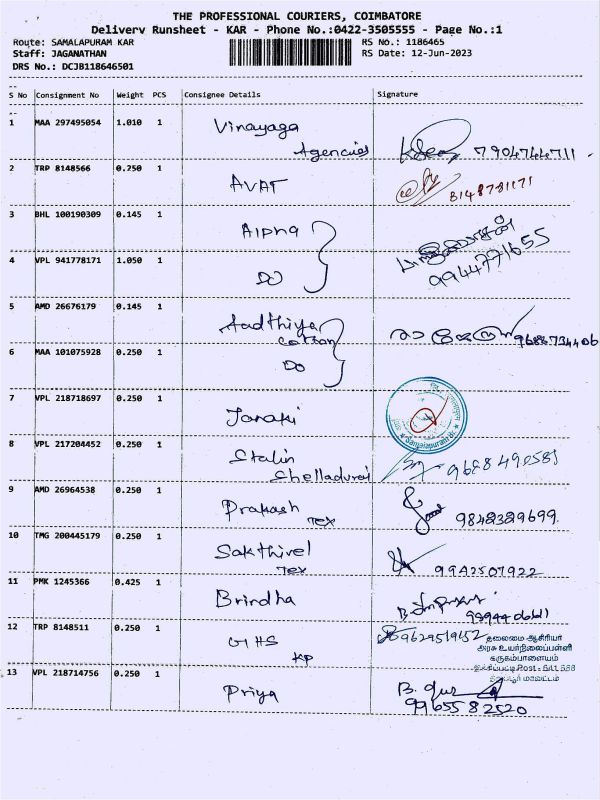 THE PROFESSIONAL COURIERS, COIMBATORE
Delivery Runsheet - KAR - Phone No.:0422-3505555 - Page No.:1
Route: SAMALAPURAM KAR
RS No.: 1186465
Staff: JAGANATHAN
RS Date: 12-Jun-2023
DRS No.: DCJB118646501
S No Consignment No Weight PCS Consignee Details Signature
1 MAA 297495054 1.010 1 Vinayaga
Agencies 7904744711
2 TRP 8148566 0.250 1 AVAT 8148731171
3 BHL 100190309 0.145 1 Alpha
4 VPL 941778171 1.050 1 DO 9944771655
5 AMD 26676179 0.145 1 Aadthiya
cotton 9684734406
6 MAA 101075928 0.250 1 DO
7 VPL 218718697 0.250 1 Janaki
8 VPL 217204452 0.250 1 Stalin
Chelladurai 9688490585
9 AMD 26964538 0.250 1 Prakash
Tex 9842329699
10 TMG 200445179 0.250 1 Sakthivel
Tex 9942507922
11 PMK 1245366 0.425 1 Brindha
12 TRP 8148511 0.250 1 GHS
KP 9629519152 தலைமை ஆசிரியர்
அரசு உயர்நிலைப்பள்ளி
கருகம்பாளையம்
மாவட்டம்
13 VPL 218714756 0.250 1 Priya
9965582520